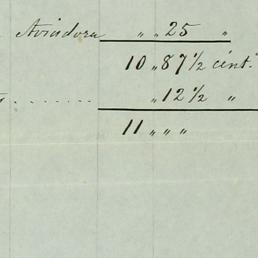 Aviadora „ „ 25 „
10 „ 87 1/2 cént.
„ 12 1/2 „
11 „ „ „